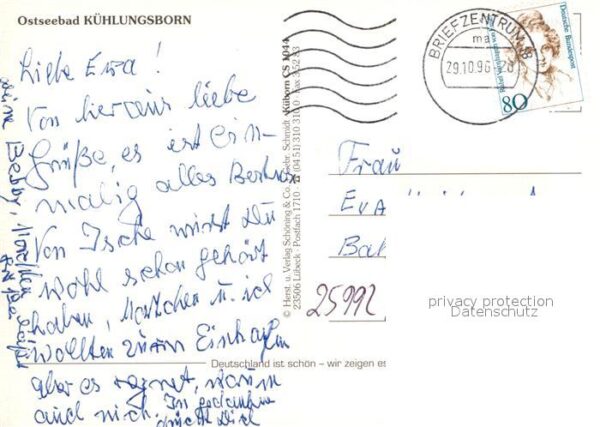 Ostseebad KÜHLUNGSBORN
Liebe Ewa!
Von hieraus liebe
Grüße, es ist ein-
malig alles
Von wirst Du
wohl schon gehört
haben, u. ich
wollten zum
aber es regnet, warum
auch nich. In gedanken
drückt Dich
deine Bebby,
© Herst. u. Verlag Schöning & Co. + Gebr. Schmidt · Küborn CS 1044
23506 Lübeck · Postfach 1710 · Tel. (04 51) 310 310 · Fax 3 52 53
BRIEFZENTRUM 18
ma
29.10.96
Deutsche Bundespost
80
Frau
Eva
25992
privacy protection
Datenschutz
Deutschland ist schön – wir zeigen es